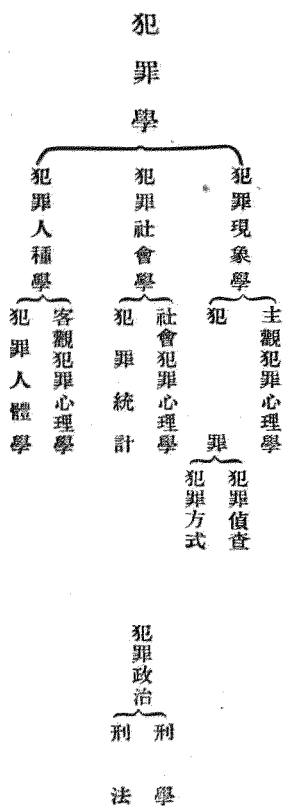 犯罪學
犯罪現象學
主觀犯罪心理學
犯罪
犯罪偵查
犯罪方式
犯罪社會學
社會犯罪心理學
犯罪統計
犯罪人種學
客觀犯罪心理學
犯罪人體學
犯罪政治
刑學
刑法